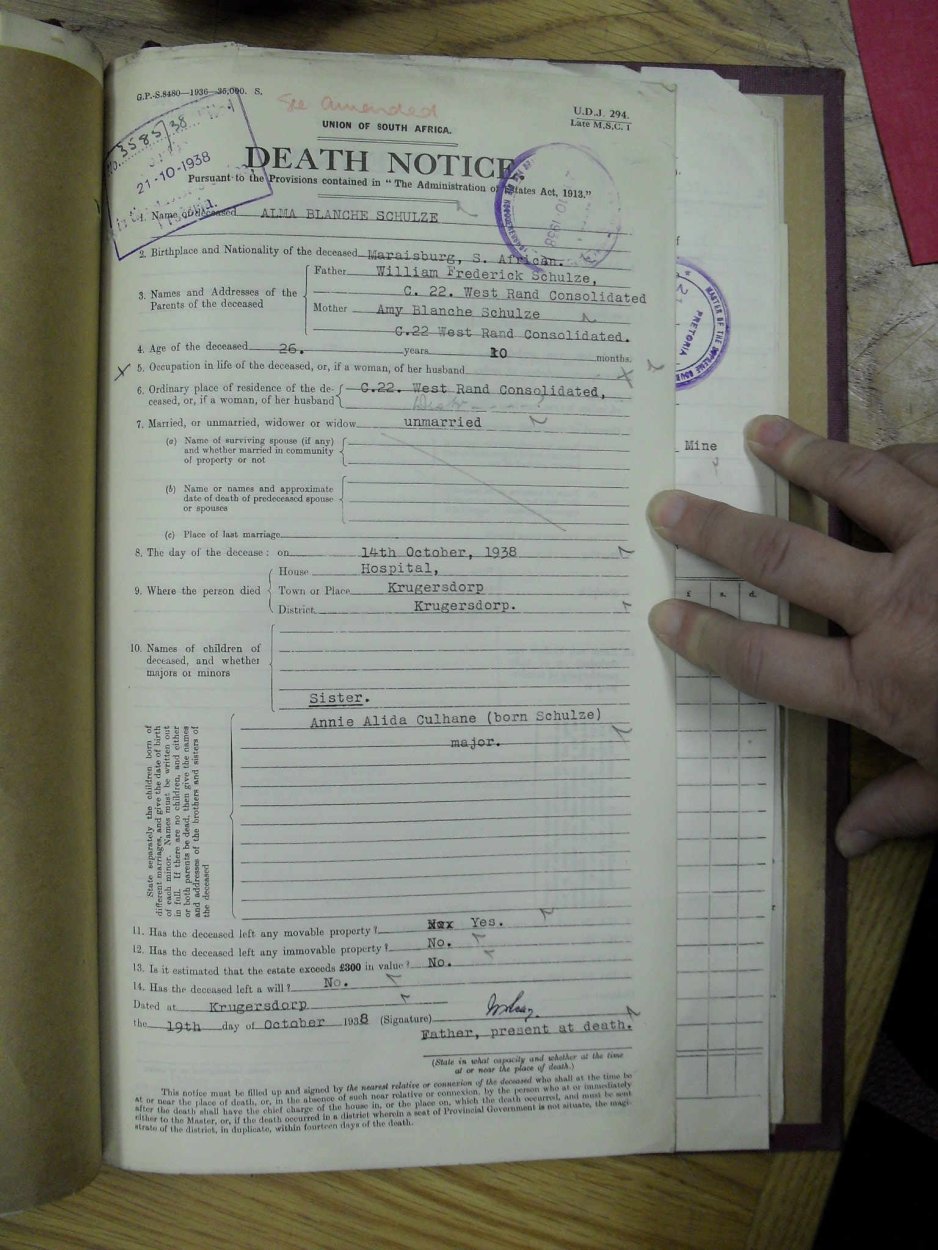 G.P.-S.8480—1936—35,000. S.
See amended
U.D.J. 294.
Late M.S.C. 1
UNION OF SOUTH AFRICA.
No. 3585/38
21-10-1938
DEATH NOTICE
Pursuant to the Provisions contained in "The Administration of Estates Act, 1913."
1. Name of deceased ALMA BLANCHE SCHULZE
2. Birthplace and Nationality of the deceased Maraisburg, S. African.
3. Names and Addresses of the Parents of the deceased
Father William Frederick Schulze,
C. 22. West Rand Consolidated
Mother Amy Blanche Schulze
C.22 West Rand Consolidated.
4. Age of the deceased 26. years 10 months.
5. Occupation in life of the deceased, or, if a woman, of her husband
6. Ordinary place of residence of the de- C.22. West Rand Consolidated,
ceased, or, if a woman, of her husband
7. Married, or unmarried, widower or widow unmarried
(a) Name of surviving spouse (if any)
and whether married in community
of property or not
(b) Name or names and approximate
date of death of predeceased spouse
or spouses
(c) Place of last marriage
8. The day of the decease: on 14th October, 1938
9. Where the person died
House Hospital,
Town or Place Krugersdorp
District Krugersdorp.
10. Names of children of
deceased, and whether
majors or minors
Sister.
Annie Alida Culhane (born Schulze)
major.
State separately the children born of
different marriages, and give the date of birth
of each minor. Names must be written out
in full. If there are no children, and either
or both parents be dead, then give the names
and addresses of the brothers and sisters of
the deceased
11. Has the deceased left any movable property? Yes.
12. Has the deceased left any immovable property? No.
13. Is it estimated that the estate exceeds £300 in value? No.
14. Has the deceased left a will? No.
Dated at Krugersdorp
the 19th day of October 1938 (Signature)
Father, present at death.
(State in what capacity and whether at the time
at or near the place of death.)
This notice must be filled up and signed by the nearest relative or connexion of the deceased who shall at the time be
at or near the place of death, or, in the absence of such near relative or connexion, by the person who at or immediately
after the death shall have the chief charge of the house in, or the place on, which the death occurred, and must be sent
either to the Master, or, if the death occurred in a district wherein a seat of Provincial Government is not situate, the magi-
strate of the district, in duplicate, within fourteen days of the death.
MASTER OF THE SUPREME
PRETORIA
Mine
£ s. d.